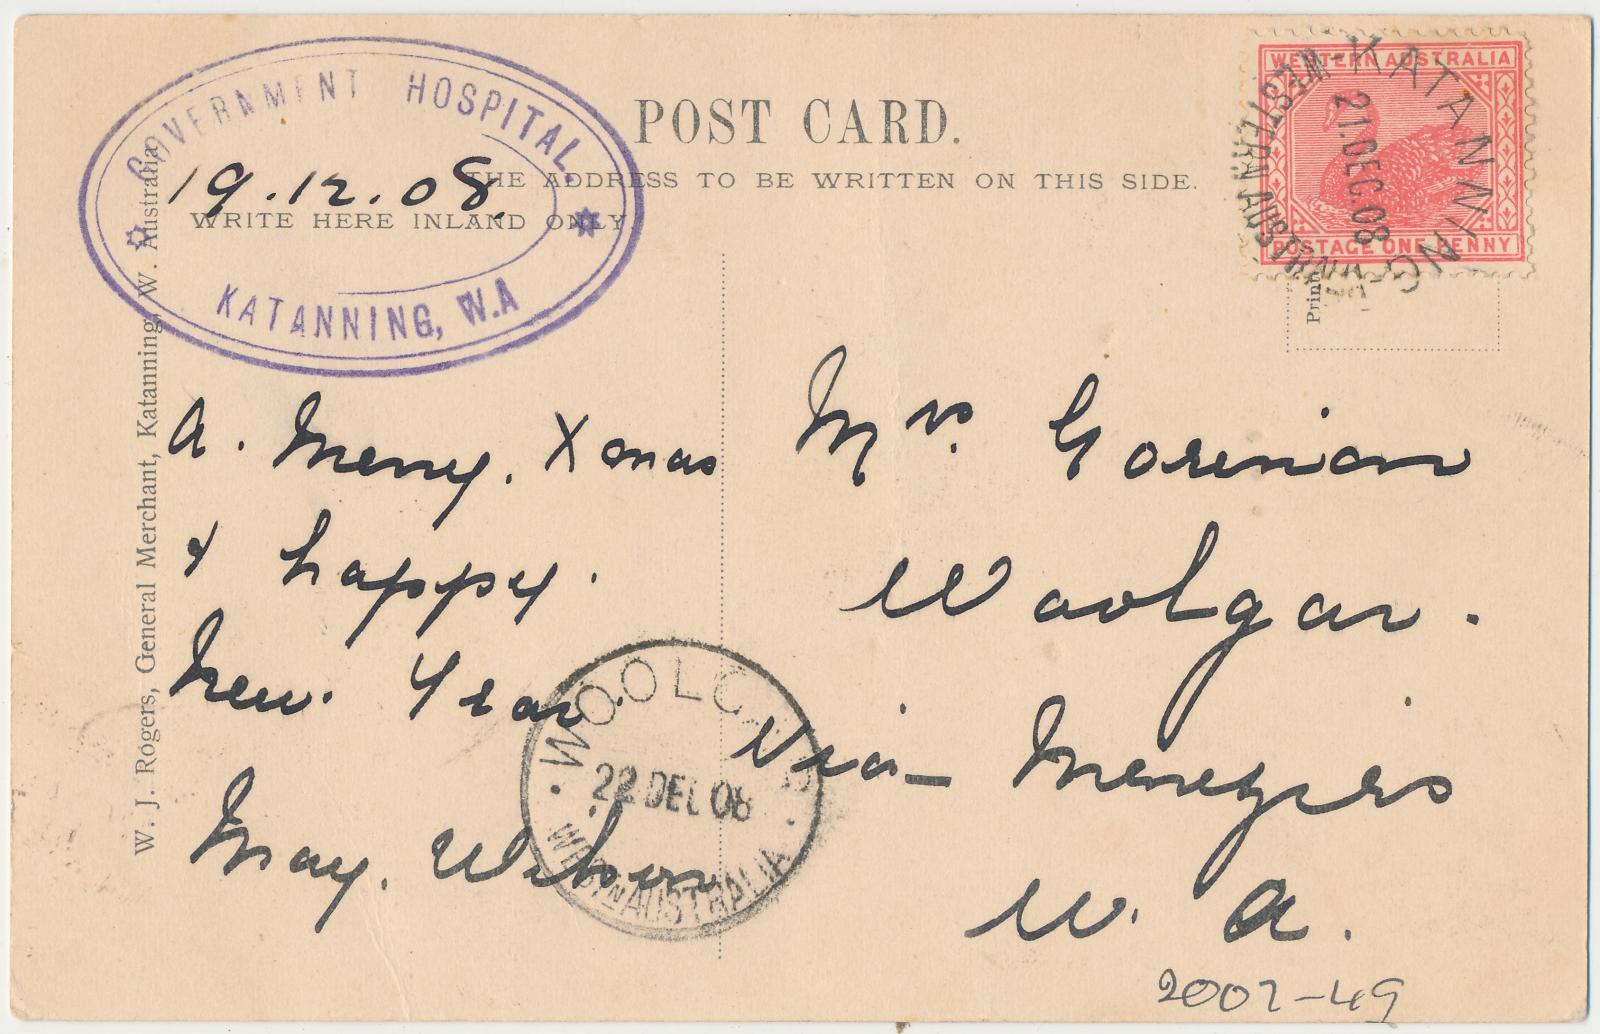 GOVERNMENT HOSPITAL
KATANNING, W.A
19.12.08
POST CARD.
THE ADDRESS TO BE WRITTEN ON THIS SIDE.
WRITE HERE INLAND ONLY
W. J. Rogers, General Merchant, Katanning, W. Australia
WESTERN AUSTRALIA
POSTAGE ONE PENNY
KATANNING
21.DEC.08
WESTERN AUSTRALIA
Print
A. Merry. Xmas
& happy.
New. Year.
May. Wilson
Mrs. Gorinian
Woolgar.
Via - Menzies
W. A.
WOOLG
22 DEC 08
WESTN AUSTRALIA
2002-49